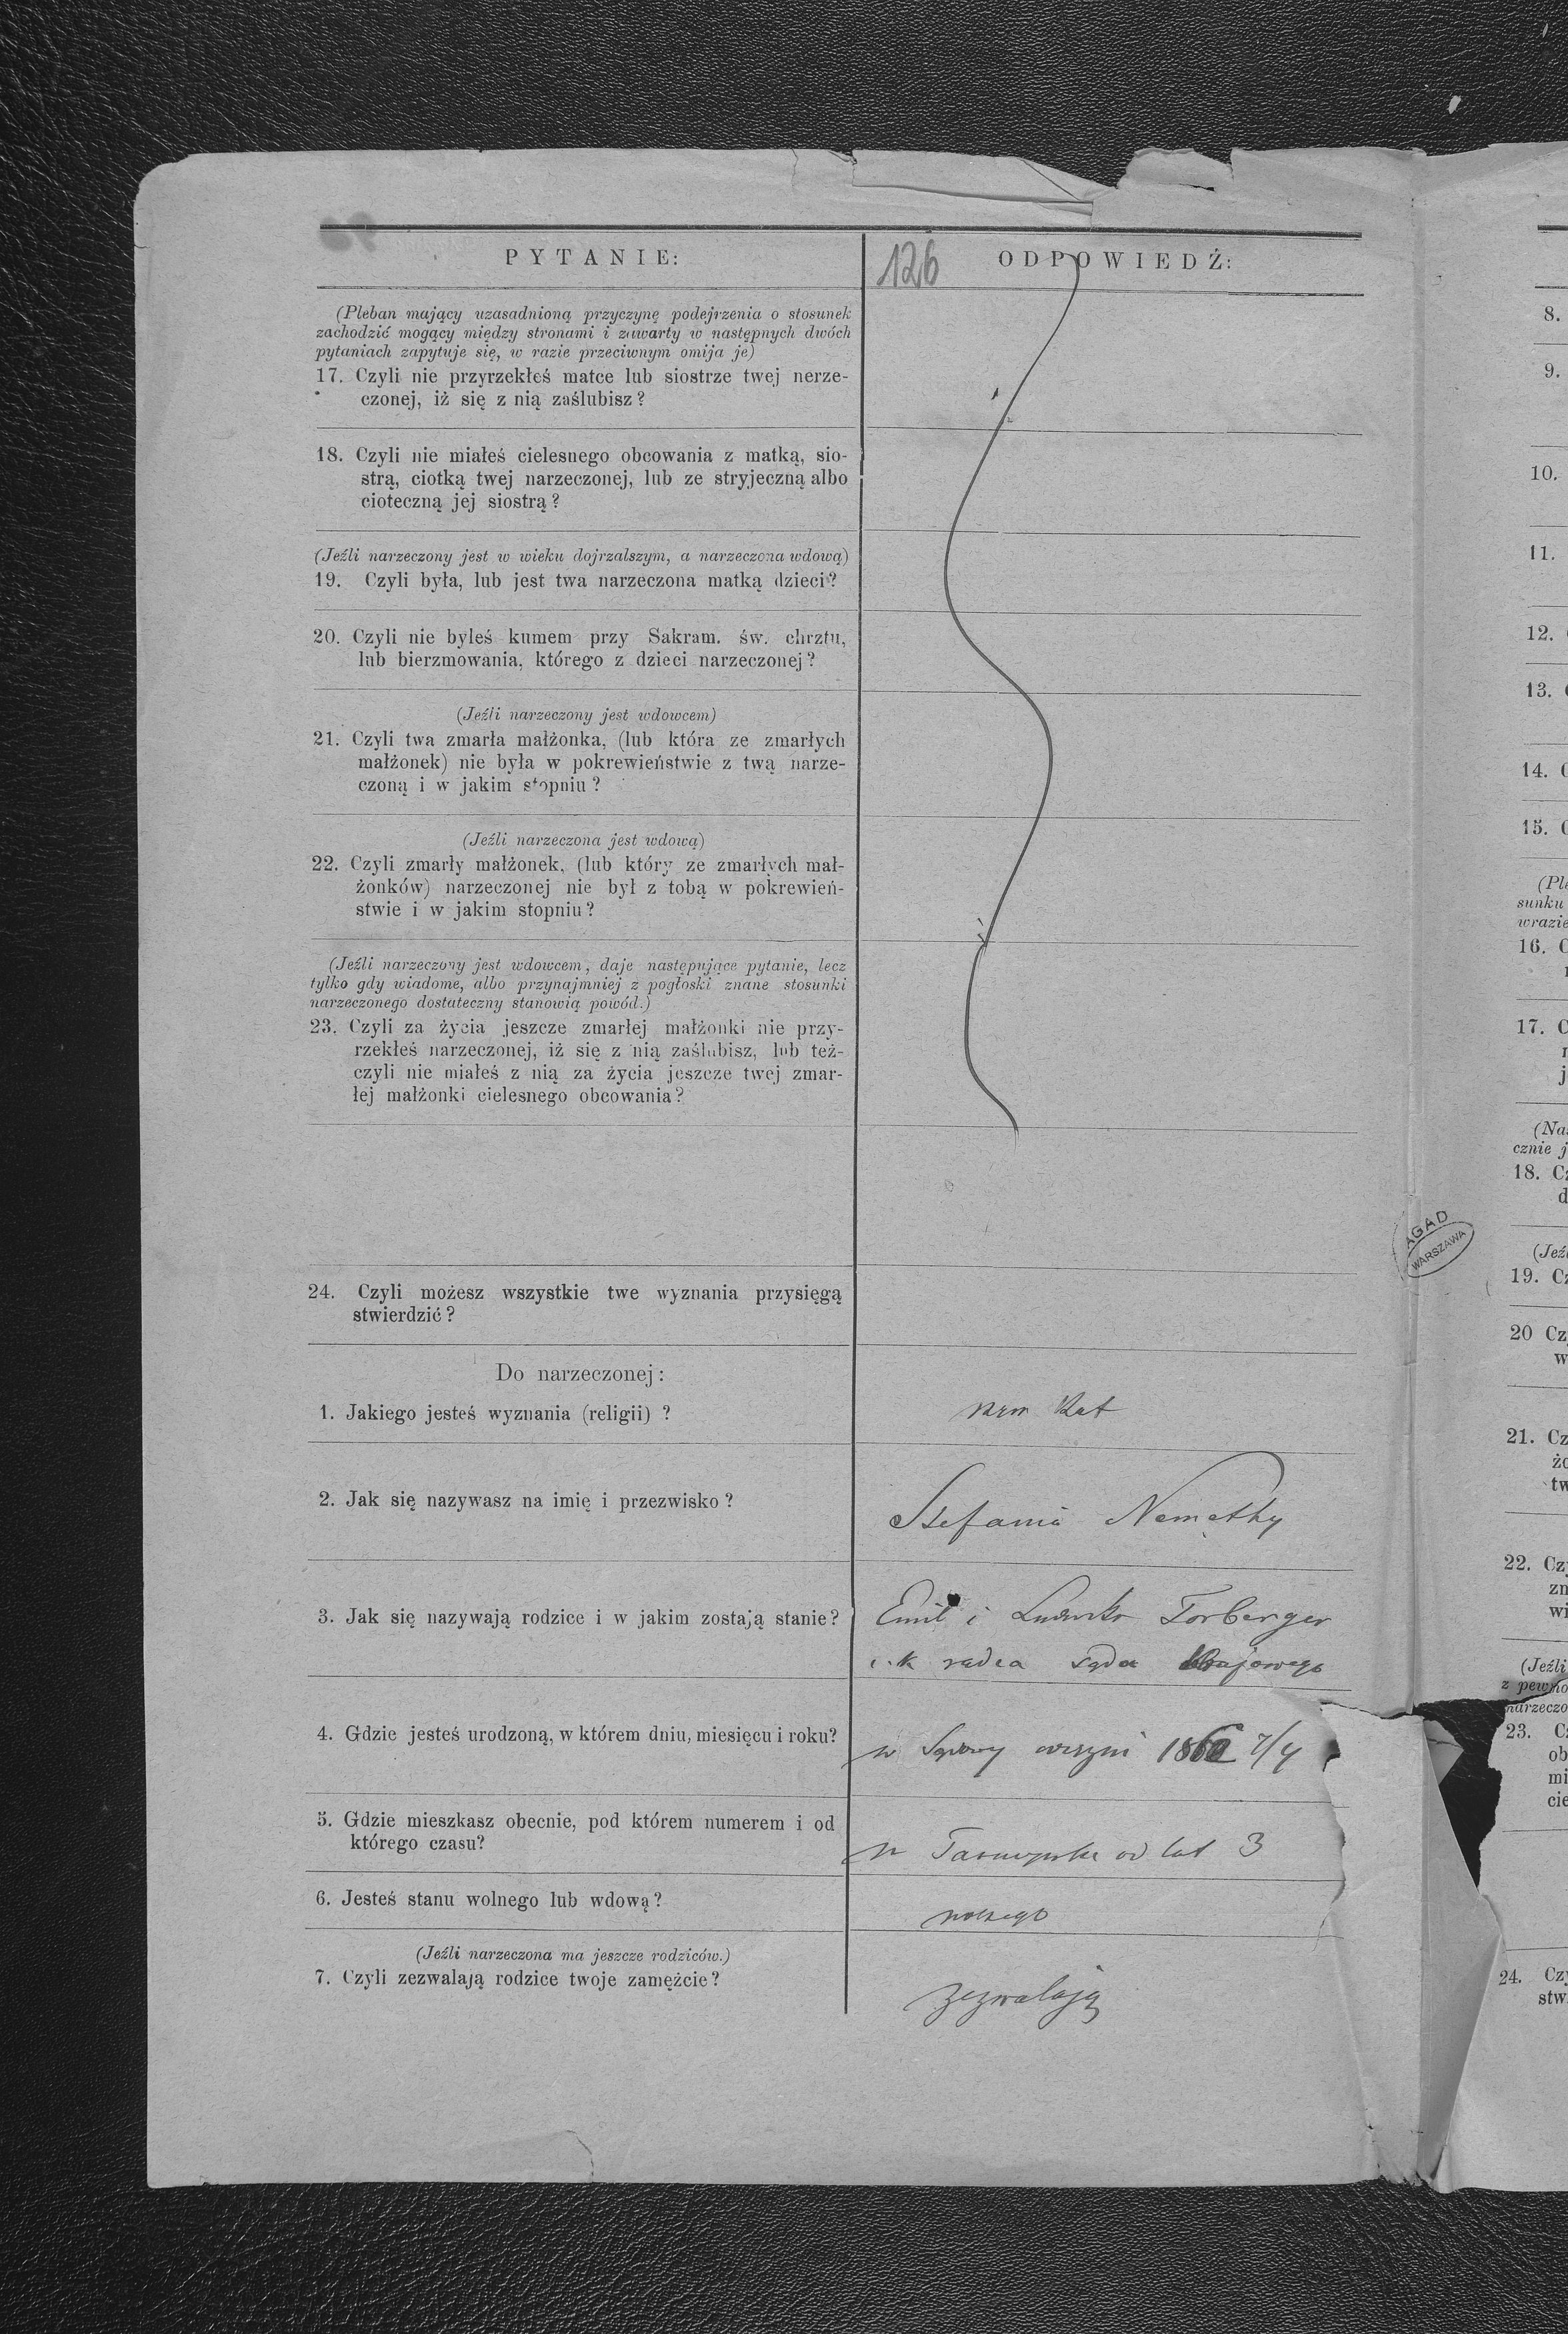 PYTANIE:
126
ODPOWIEDŹ:
(Pleban mający uzasadnioną przyczynę podejrzenia o stosunek
zachodzić mogący między stronami i zawarty w następnych dwóch
pytaniach zapytuje się, w razie przeciwnym omija je)
17. Czyli nie przyrzekłeś matce lub siostrze twej nerze-
czonej, iż się z nią zaślubisz?
18. Czyli nie miałeś cielesnego obcowania z matką, sio-
strą, ciotką twej narzeczonej, lub ze stryjeczną albo
cioteczną jej siostrą?
(Jeźli narzeczony jest w wieku dojrzalszym, a narzeczona wdową)
19. Czyli była, lub jest twa narzeczona matką dzieci?
20. Czyli nie byleś kumem przy Sakram. św. chrztu,
lub bierzmowania, którego z dzieci narzeczonej?
(Jeźli narzeczony jest wdowcem)
21. Czyli twa zmarła małżonka, (lub która ze zmarłych
małżonek) nie była w pokrewieństwie z twą narze-
czoną i w jakim stopniu?
(Jeźli narzeczona jest wdową)
22. Czyli zmarły małżonek, (lub który ze zmarłych mał-
żonków) narzeczonej nie był z tobą w pokrewień-
stwie i w jakim stopniu?
(Jeźli narzeczony jest wdowcem, daje następujące pytanie, lecz
tylko gdy wiadome, albo przynajmniej z pogłoski znane stosunki
narzeczonego dostateczny stanowią powód.)
23. Czyli za życia jeszcze zmarłej małżonki nie przy-
rzekłeś narzeczonej, iż się z nią zaślubisz, lub też-
czyli nie miałeś z nią za życia jeszcze twej zmar-
łej małżonki cielesnego obcowania?
24. Czyli możesz wszystkie twe wyznania przysięgą
stwierdzić?
Do narzeczonej:
1. Jakiego jesteś wyznania (religii) ?
rzm Kat
2. Jak się nazywasz na imię i przezwisko?
Stefania Nemethy
3. Jak się nazywają rodzice i w jakim zostają stanie?
Emil i Ludwika Torberger
c. k radca sądu krajowego
4. Gdzie jesteś urodzoną, w którem dniu, miesięcu i roku?
w Sądowy wiszni 7/4
5. Gdzie mieszkasz obecnie, pod którem numerem i od
którego czasu?
w od lat 3
6. Jesteś stanu wolnego lub wdową?
wolnego
(Jeźli narzeczona ma jeszcze rodziców.)
7. Czyli zezwalają rodzice twoje zamęźcie?
zezwalają
AGAD
WARSZAWA
8.
9.
10.
11.
12.
13.
14. C
15. C
(Ple
sunku
wrazie
16. C
17. C
j
(Na
cznie j
18. Cz
d
(Jeź
19. Cz
20 Cz
w
21. Cz
żo
tw
22. Cz
zn
wi
(Jeźli
z pewno
narzeczo
23. C
ob
mi
cie
24. Czy
stw